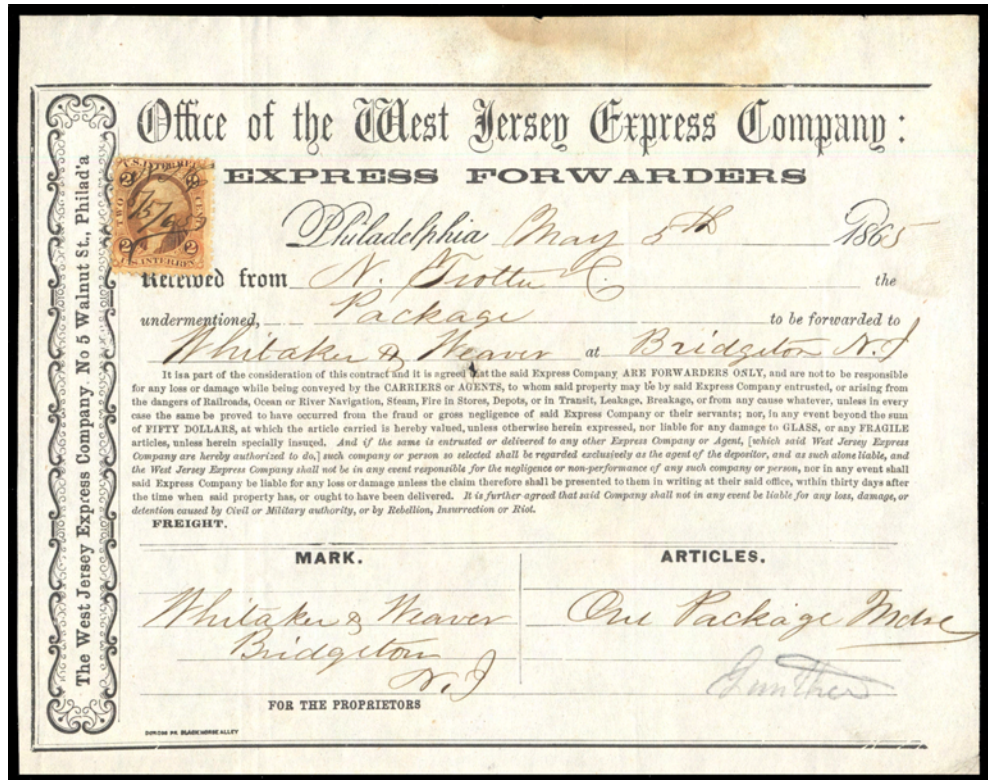 Office of the West Jersey Express Company:
EXPRESS FORWARDERS
The West Jersey Express Company. No 5 Walnut St., Philad'a
U.S. INTER. REV.
2 2
TWO CENTS
5/5/65
2 2
U.S. INTER. REV.
Philadelphia May 5th 1865
Received from N. Trotter the
undermentioned, Package to be forwarded to
Whitaker & Weaver at Bridgeton N.J
It is a part of the consideration of this contract and it is agreed that the said Express Company ARE FORWARDERS ONLY, and are not to be responsible
for any loss or damage while being conveyed by the CARRIERS or AGENTS, to whom said property may be by said Express Company entrusted, or arising from
the dangers of Railroads, Ocean or River Navigation, Steam, Fire in Stores, Depots, or in Transit, Leakage, Breakage, or from any cause whatever, unless in every
case the same be proved to have occurred from the fraud or gross negligence of said Express Company or their servants; nor, in any event beyond the sum
of FIFTY DOLLARS, at which the article carried is hereby valued, unless otherwise herein expressed, nor liable for any damage to GLASS, or any FRAGILE
articles, unless herein specially insured. And if the same is entrusted or delivered to any other Express Company or Agent, [which said West Jersey Express
Company are hereby authorized to do,] such company or person so selected shall be regarded exclusively as the agent of the depositor, and as such alone liable, and
the West Jersey Express Company shall not be in any event responsible for the negligence or non-performance of any such company or person, nor in any event shall
said Express Company be liable for any loss or damage unless the claim therefor shall be presented to them in writing at their said office, within thirty days after
the time when said property has, or ought to have been delivered. It is further agreed that said Company shall not in any event be liable for any loss, damage, or
detention caused by Civil or Military authority, or by Rebellion, Insurrection or Riot.
FREIGHT.
MARK. ARTICLES.
Whitaker & Weaver One Package Mdse
Bridgeton
N.J Gunther
FOR THE PROPRIETORS
PR. BLACK HORSE ALLEY